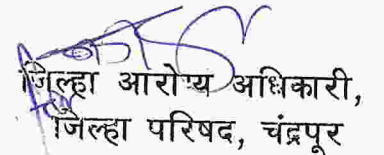 जिल्हा आरोग्य अधिकारी,
जिल्हा परिषद, चंद्रपूर